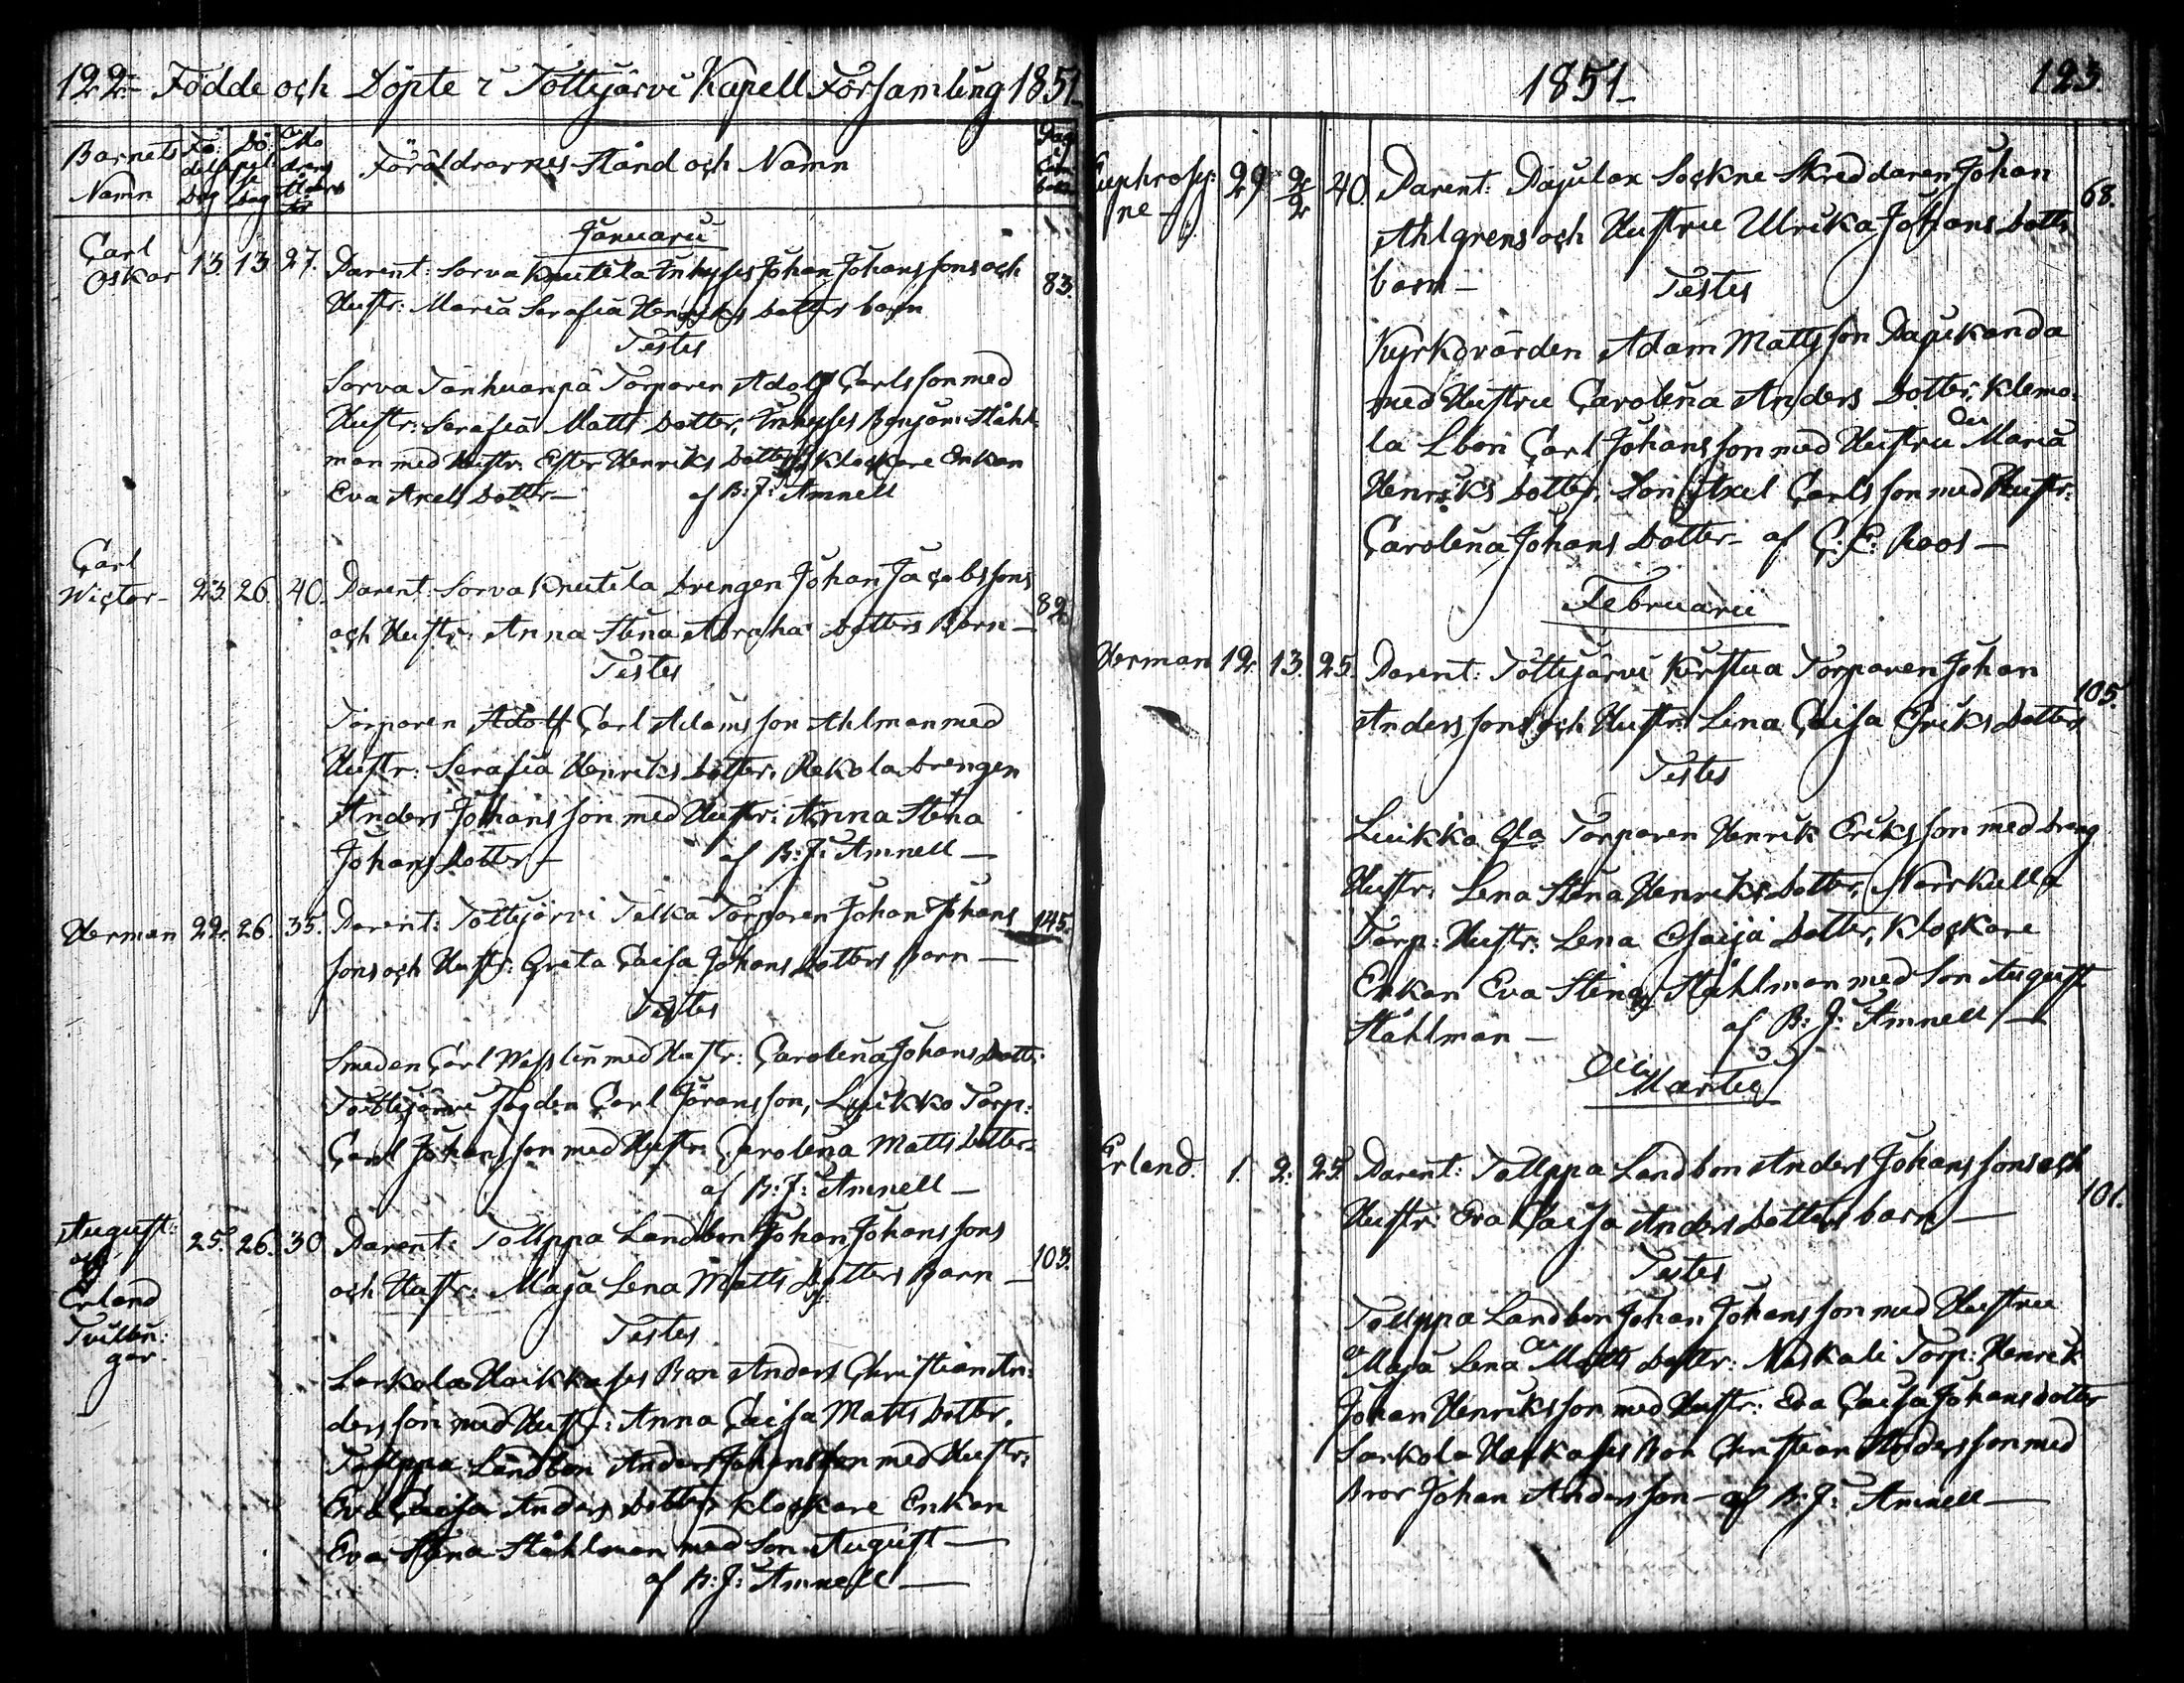 122. Födde och Döpte i Tottijärvi Kapell Församling 1851
Barnets Namn
Fö delse Dag
Dö pel se Dag
Mo drens Ålders År
Föräldrarnes Stånd och Namn
Pag i Com boken
Januarii
Carl Oskar 13. 13. 27. Parent: Sorva Knutila Inhyses Johan Johanssons och 83.
Hustr: Maria Serafia Henriks Dotters barn
Testes
Sorva Tanhuanpä Torparen Adolf Carlsson med
Hustr: Serafia Matts Dotter, Inhyses Benjam: Ståhl-
man med Hustr: Ester Henriks Dotter, Klockare Enkan
Eva Axels Dotter — af B: J: Amnell
Carl
Wictor - 23. 26. 40. Parent: Sorva Knutila Drengen Johan Jacobssons 82.
och Hustr: Anna Stina Abraha Dotters Barn —
Testes
Torparen Adolf Carl Adamsson Ahlman med
Hustr: Serafia Henriks Dotter, Rekola Drengen
Anders Johansson med Hustr: Anna Stina
Johans Dotter — af B: J: Amnell —
Herman 22. 26. 35. Parent: Tottijärvi Telka Torparen Johan Johans 145.
sons och Hustr: Greta Caisa Johans Dotters Barn —
Testes
Smeden Carl Wesslin med Hustr: Carolina Johans Dott:
Tottijärvi Fogden Carl Göransson, Luikko Torp:
Carl Johansson med Hustr: Carolina Matts Dotter-
af B: J: Amnell —
August: 25. 26. 30 Parent: Tolppa Landbon Johan Johanssons 103.
och
Erland
Tvillin:
gar.
och Hustr: Maja Lena Matts Dotters Barn —
Testes
Sarkola Haikka ses Bon Anders Christian An-
dersson med Hustr: Anna Caisa Matts Dotter,
Tolppa Landbon Anders Johansson med Hustr:
Eva Caisa Anders Dotter, Klockare Enkan
Eva Stina Ståhlman med Son August —
af B: J: Amnell —
1851 123.
Euphrosy:
ne - 29 2/2 40. Parent: Pajulax Sockne Skreddaren Johan 68.
Ahlgrens och Hustru Ulrika Johans Dotte
barn — Testes
Kyrkovärden Adam Mattsson Papukanda
med Hustru Carolina Anders Dotter, Klemo:
la Lbon Carl Johansson med Hustru Maria
Henriks Dotter, Son Axel Carlsson med Hustr:
Carolina Johans Dotter - af C: E: Roos —
Februarii
Herman 12. 13. 25. Parent: Tottijärvi Kirstua Torparen Johan 105.
Anderssons och Hustr: Lena Caisa Eriks Dotters
Testes
Luikka Torparen Henrik Eriksson med
Hustr: Lena Stina Henriks Dotter, Norrkulla
Torp: Hustr: Lena Esaija Dotter, Klockare
Enkan Eva Stina Ståhlman med Son August
Ståhlman — af B: J: Amnell —
Martii
Erland. 1. 2. 25. Parent: Tolppa Landbon Anders Johanssons och 101.
Hustr: Eva Caisa Anders Dotters barn —
Testes
Tolppa Landbon Johan Johansson med Hustru
Maja Lena Matts Dotter: Naskali Torp: Henrik
Johan Henriksson med Hustr: Eva Caisa Johans dotter
Sarkola Bon Christian Andersson med
Bror Johan Andersson — af B: J: Amnell —